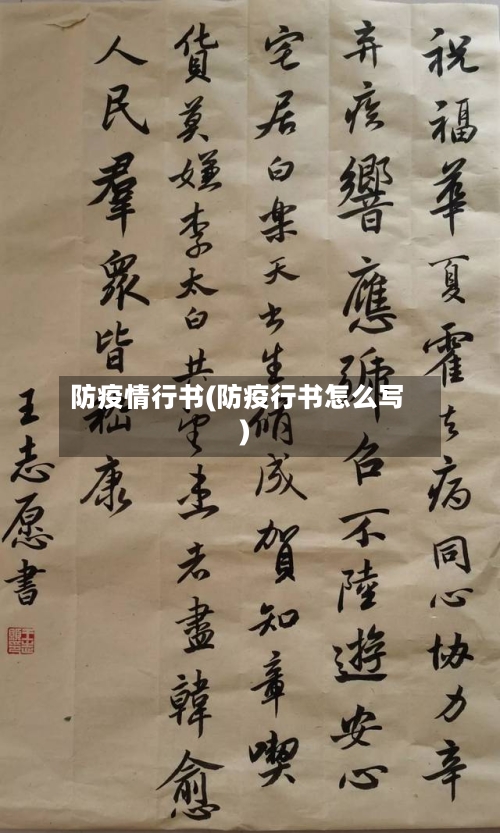 祝福華夏霍去病同心协力辛
弃疾響應號召不陸遊安心
宅居白楽天生成賀知章喫
貨莫嫌李太白共望患者盡韓愈
人民羣衆皆嵇康
王志愿書
防疫情行书(防疫行书怎么写
)